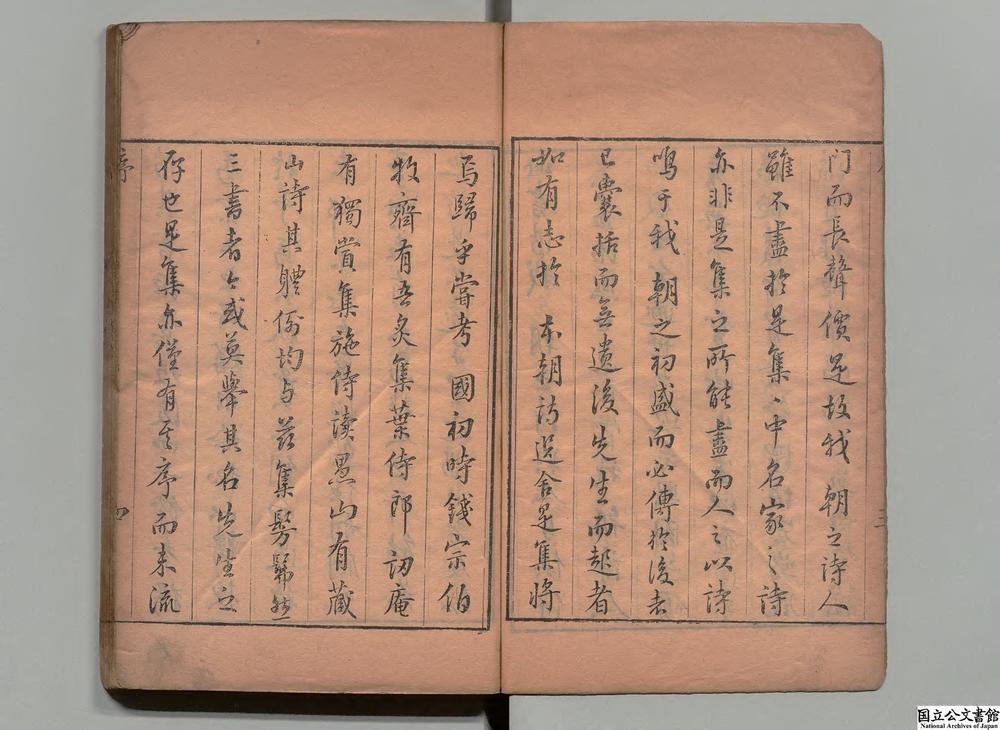 門而長聲價是故我 朝之詩人
雖不盡於是集、中名家之詩
亦非是集之所能盡而人之以詩
鳴于我 朝之初盛而必傳於後者
已囊括而無遺後先生而起者
如有志於 本朝詩選舍是集將
焉歸乎嘗考 國初時錢宗伯
牧齋有吾炙集葉侍郎訒庵
有獨賞集施侍讀愚山有藏
山詩其體例均与茲集髣髴然
三書者今或莫舉其名先生之
存也是集亦僅有其序而未流
序
四
国立公文書館
National Archives of Japan